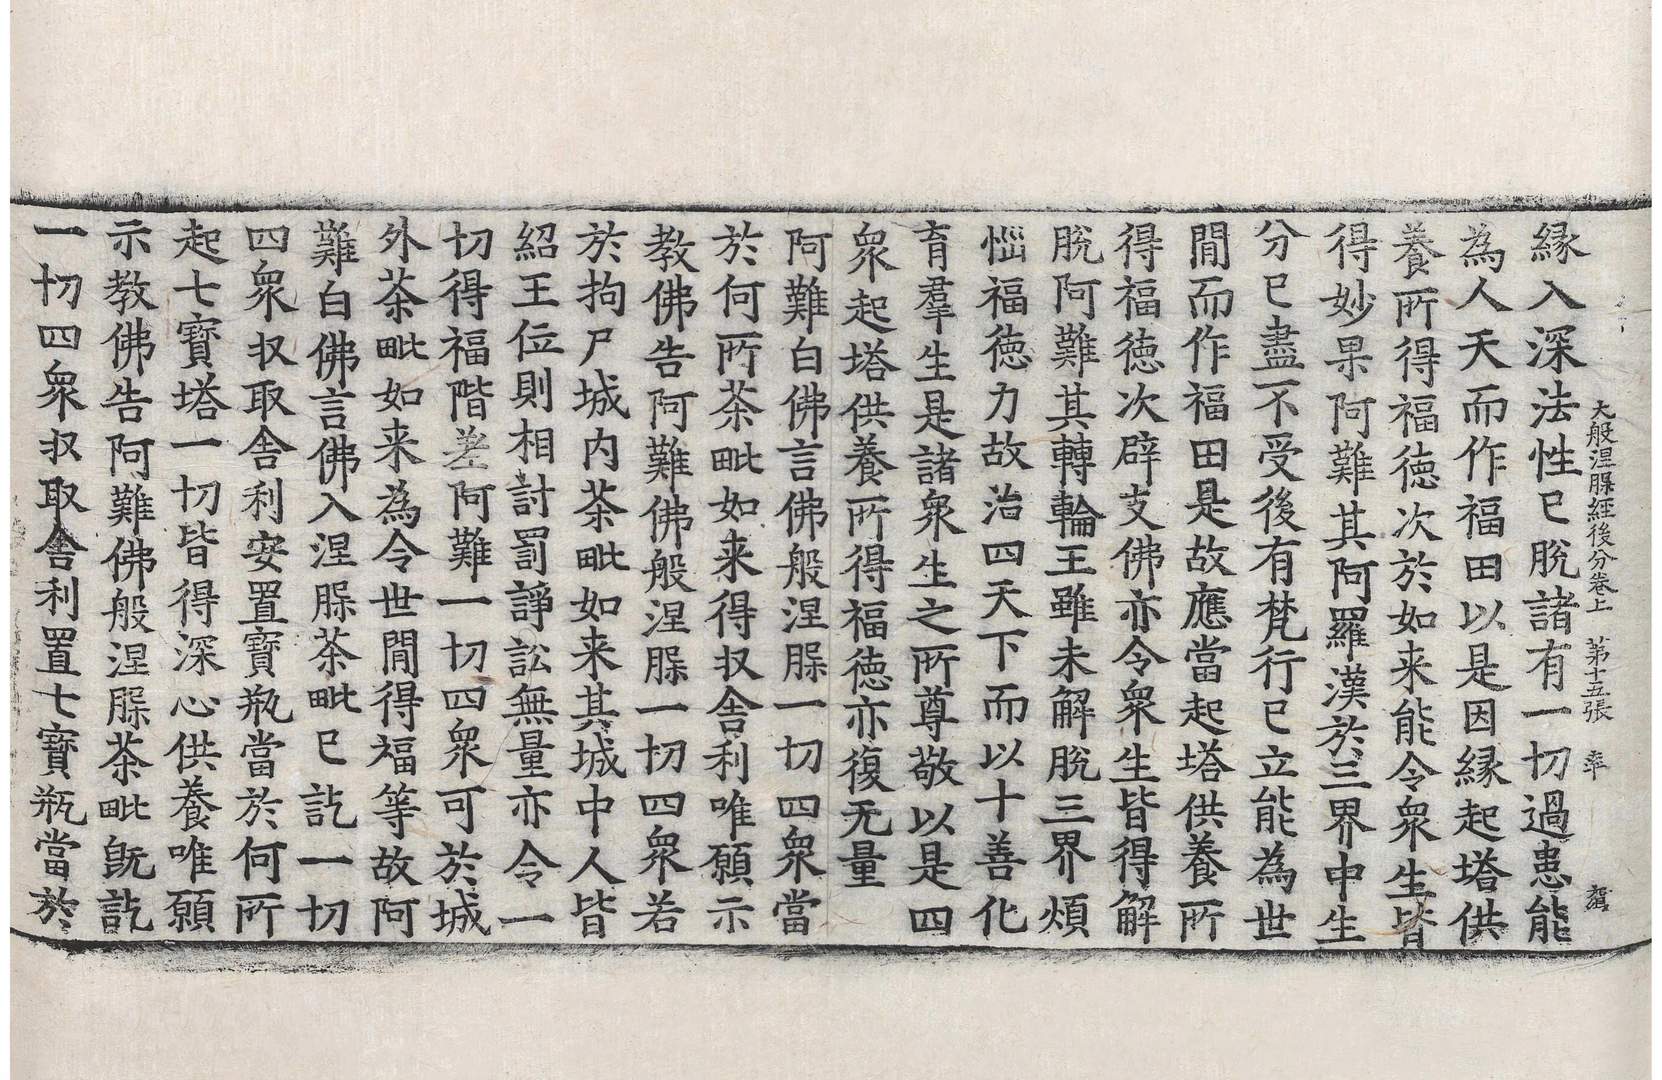 大般涅槃經後分卷上　第十五張　率
緣入深法性已脫諸有一切過患能
為人天而作福田以是因緣起塔供
養所得福德次於如来能令衆生皆
得妙果阿難其阿羅漢於三界中生
分已盡不受後有梵行已立能為世
閒而作福田是故應當起塔供養所
得福德次辟支佛亦令衆生皆得解
脫阿難其轉輪王雖未解脫三界煩
惱福德力故治四天下而以十善化
育羣生是諸衆生之所尊敬以是四
衆起塔供養所得福德亦復无量
阿難白佛言佛般涅槃一切四衆當
於何所茶毗如来得收舍利唯願示
教佛告阿難佛般涅槃一切四衆若
於拘尸城内茶毗如来其城中人皆
紹王位則相討罰諍訟無量亦令一
切得福階差阿難一切四衆可於城
外茶毗如来為令世閒得福等故阿
難白佛言佛入涅槃茶毗已訖一切
四衆收取舍利安置寶瓶當於何所
起七寶塔一切皆得深心供養唯願
示教佛告阿難佛般涅槃茶毗旣訖
一切四衆收取舍利置七寶瓶當於